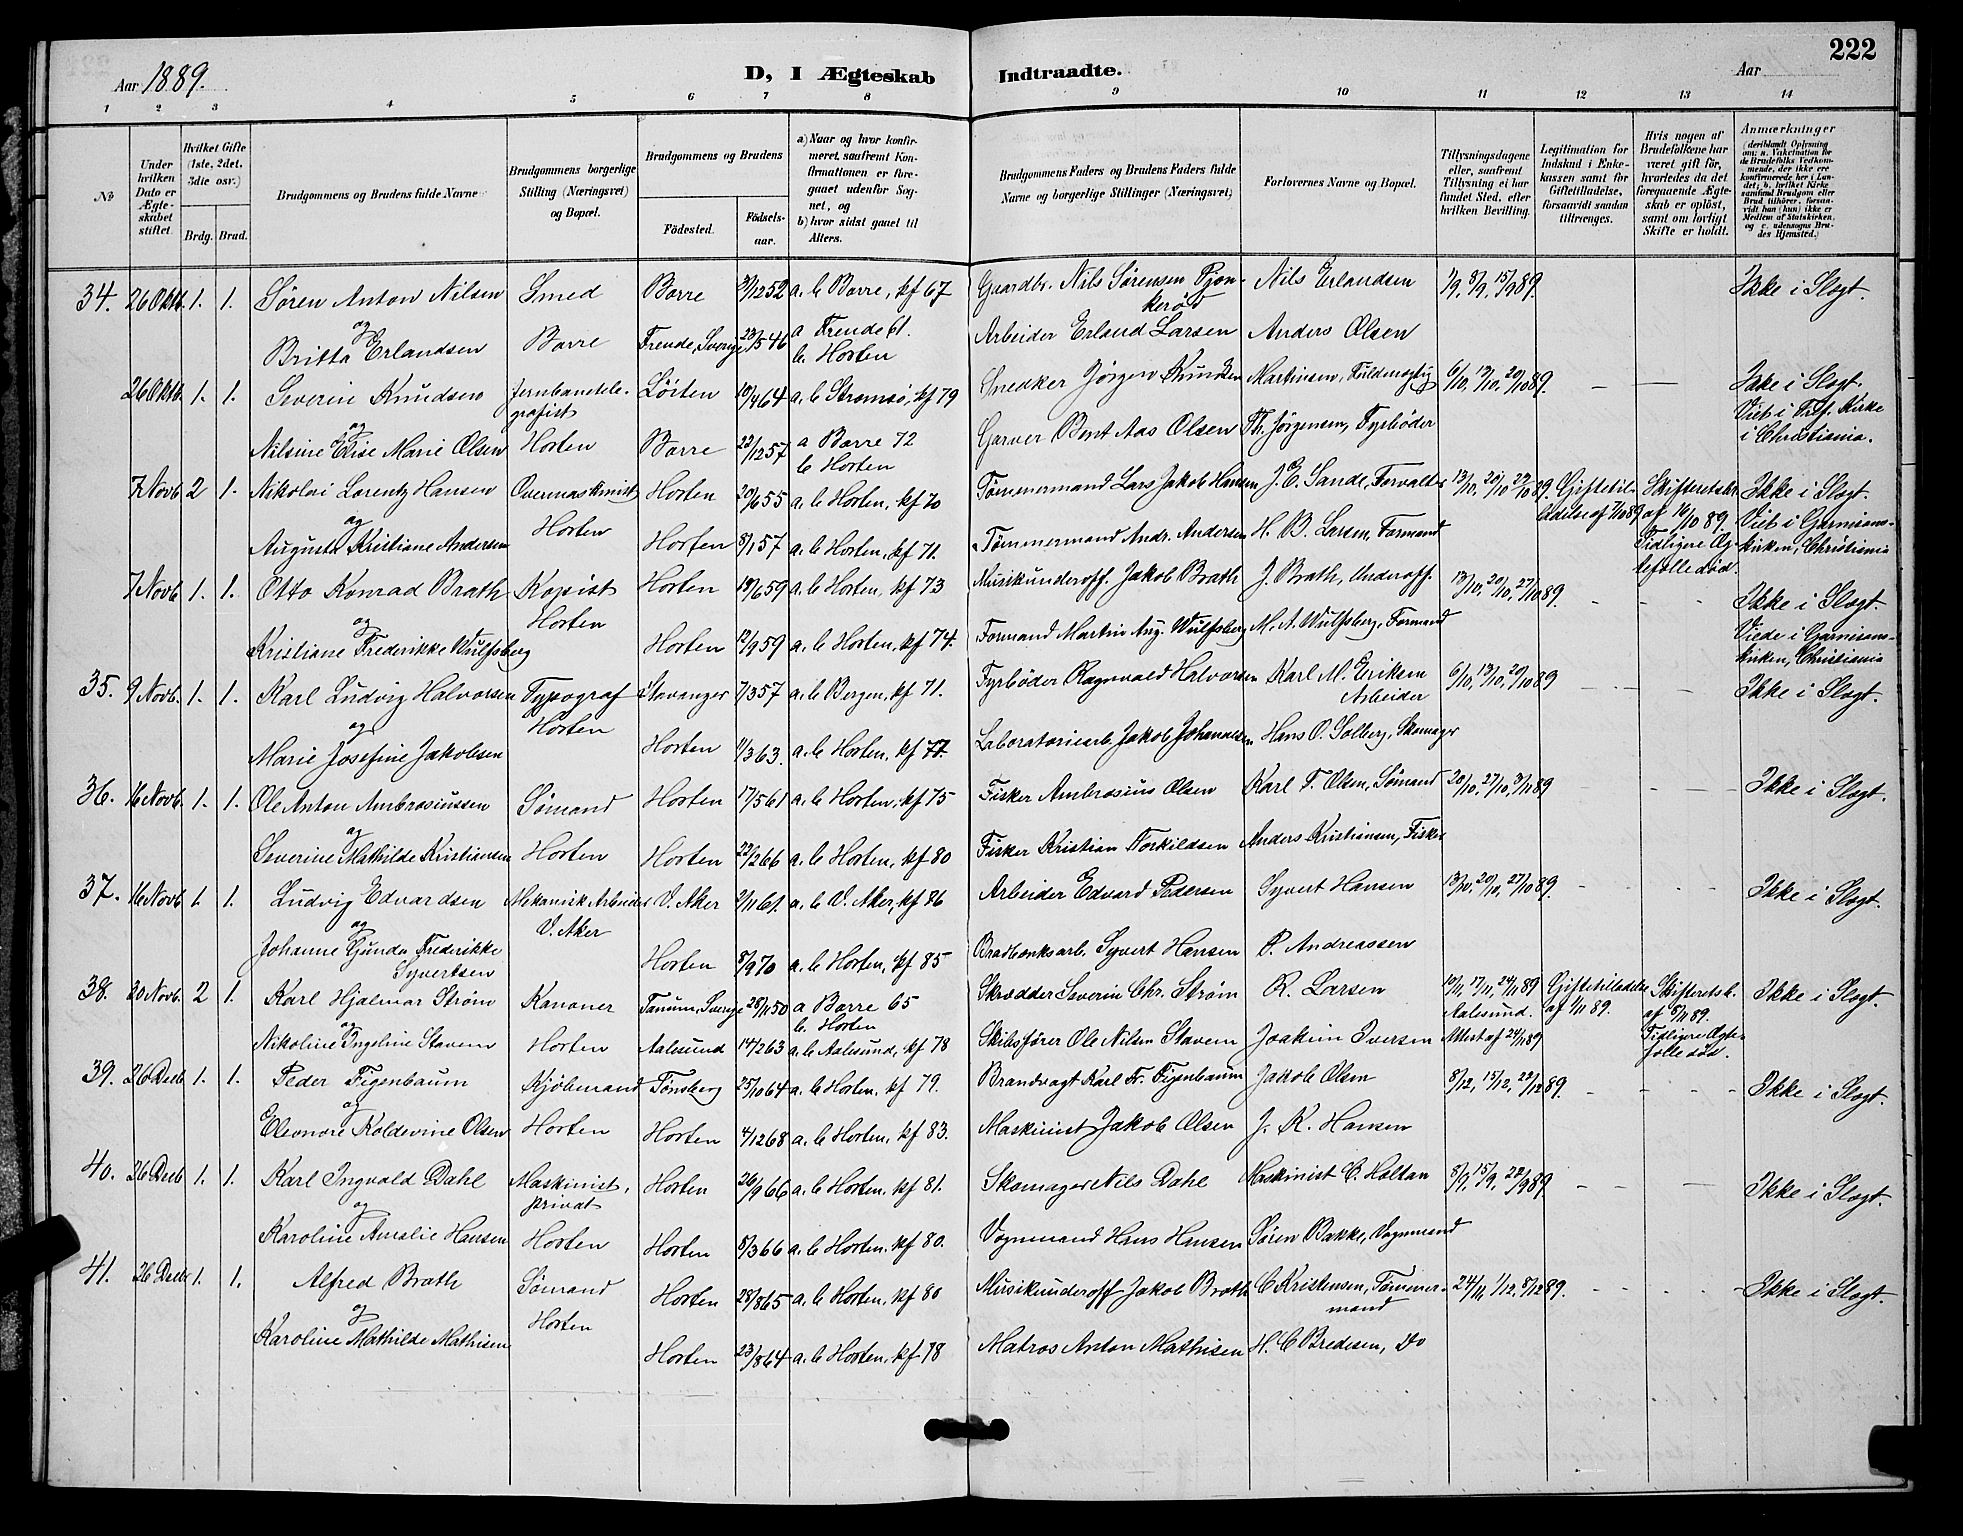 222
Aar 1889.
D, I Ægteskab Indtraadte.
Aar
1 2 3 4 5 6 7 8 9 10 11 12 13 14
No
Under hvilken Dato er Ægteskabet stiftet.
Hvilket Gifte (1ste, 2det, 3die osv.)
Brdg. Brud.
Brudgommens og Brudens fulde Navne
Brudgommens borgerlige Stilling (Næringsvei) og Bopæl.
Brudgommens og Brudens
Födested. Födselsaar.
a) Naar og hvor konfirmeret, saafremt Konfirmationen er foregaaet udenfor Sognet, og b) hvor sidst gaaet til Alters.
Brudgommens Faders og Brudens Faders fulde Navne og borgerlige Stillinger (Næringsvei)
Forlovernes Navne og Bopæl.
Tillysningsdagene eller, saafremt Tillysning ei har fundet Sted, efter hvilken Bevilling.
Legitimation for Indskud i Enkekassen samt for Giftetilladelse, forsaavidt saadan tiltrænges.
Hvis nogen af Brudefolkene har været gift för, hvorledes da det foregaaende Ægteskab er oplöst, samt om lovligt Skifte er holdt.
Anmærkninger (deriblandt Oplysning om: a. Vakcination for de Brudefolks Vedkommende, der ikke ere konfirmerede her i Landet; b. hvilket Kirkesamfund Brudgom eller Brud tilhörer, forsaavidt han (hun) ikke er Medlem af Statskirken, og c. udensogns Brudes Hjemsted.)
34. 26 Oktb. 1. 1. Søren Anton Nilsen Smed Borre /1252 a. b Borre, kf 67 Gaardbr. Nils Sørensen Pjonkerød Nils Erlandsen 1/9, 8/9, 15/9 89. Ikke i Slægt.
og
Britta Erlandsen Borre Frende, Sverige 23/5 46 a Frende 61. b. Horten Arbeider Erland Larsen Anders Olsen
26 Oktb. 1. 1. Severin Knudsen Jernbanetelegrafist Løiten 10/4 64 a. b Strømsø, kf 79 Snedker Jörgen Knudsen Martinsen, Fuldmægtig 6/10, 13/10, 20/10 89. — — Ikke i Slægt. Viet i Tref. Kirke i Christiania.
og
Nilsine Elise Marie Olsen Horten Borre 22/12 57 a Borre 72 b Horten Garver Bent Aas Olsen Th. Jörgensen, Fyrbøder
7 Novb. 2 1. Nikolai Lorentz Hansen Overmaskinist Horten 20/6 55 a. b Horten, kf 70 Tømmermand Lars Jakob Hansen J. E. Sande, Forvalter 13/10, 20/10 27/10 89. Giftetilladelse af 7/10 89 Skifteretsbr. af 16/10 89. Tidligere Ægtefølle død. Ikke i Slægt. Viet i Garnisonskirken, Christiania
og
Augusta Kristiane Andersen Horten Horten 8/1 57 a. b Horten, kf 71. Tømmermand Andr. Andersen H. B. Larsen, Formand
7 Novb 1. 1. Otto Konrad Brath Kopist Horten 19/6 59 a. b Horten, kf 73 Musikunderoff. Jakob Brath J. Brath, Underoff. 13/10, 20/10, 27/10 89. - - - Ikke i Slægt. Viede i Garnisonskirken, Christiania
og
Kristiane Frederikke Wulfsberg Horten Horten 12/9 59 a. b Horten, kf 74. Formand Martin Aug. Wulfsberg M. A. Wulfsberg, Formand
35. 9 Novb. 1. 1. Karl Ludvig Halvorsen Typograf Stavanger 7/3 57 a. b Bergen, kf 71. Fyrbøder Ragnvald Halvorsen Karl M. Eriksen Arbeider 6/10, 13/10, 20/10 89 - - - Ikke i Slægt.
og
Marie Josefine Jakobsen Horten Horten /3 63. a. b Horten, kf 77. Laboratoriearb. Jakob Johannesen Hans O. Solberg, Skomager
36. 16 Novb. 1. 1. Ole Anton Ambrosiussen Sømand Horten 17/5 61 a. b Horten, kf 75 Fisker Ambrosius Olsen Karl F. Olsen, Sömand 20/10, 27/10, 3/11 89 - - - Ikke i Slægt.
og
Severine Mathilde Kristiansen Horten Horten 22/2 66 a. b Horten, kf 80 Fisker Kristian Torkildsen Anders Kristiansen, Fisker
37. 16 Novb 1. 1. Ludvig Edvardsen Mekanisk Arbeider V. Aker 2/11 61. a. b V. Aker, kf 86 Arbeider Edvard Pedersen Syvert Hansen 13/10, 20/10, 27/10 89. - - - Ikke i Slægt.
og
Johanne Gunda Frederikke Syvertsen V. Aker Horten 8/9 70 a. b Horten, kf 85 Bradbænksarb. Syvert Hansen P. Andreassen
38. 20 Novb. 2 1. Karl Hjalmar Strøm Kanoner Tanum, Sverige 28/11 50 a Borre 65 b. Horten Skrædder Severin Chr. Strøm R. Larsen 10/11, 17/11, 24/11 89 Aalesund. Giftetilladelse af 1/11 89. Skifteretsb. af 8/11 89. Tidligere Ægtefølle død. Ikke i Slægt.
og
Nikoline Ingeline Stavem Horten Aalesund 14/2 63 a. b Aalesund, kf 78 Skibsfører Ole Nilsen Stavem Joakim Iversen Attest af 24/11 89
39. 26 Decb. 1. 1. Peder Figenbaum Kjøbmand Tønsberg 25/10 64 a. b Horten, kf 79. Brandvagt Karl Fr. Figenbaum Jakob Olsen 8/12, 15/12, 22/12 89. - - - Ikke i Slægt.
og
Eleonore Koldevine Olsen Horten Horten 4/12 68 a. b Horten, kf 83. Maskinist Jakob Olsen J. K. Hansen
40. 26 Decb 1. 1. Karl Ingvald Dahl Maskinist, privat Horten 26/9 66 a. b Horten, kf 81. Skomager Nils Dahl Maskinist C. Holtan 8/9, 15/9, 22/9 89 - - - Ikke i Slægt.
og
Karoline Amalie Hansen Horten Horten 8/3 66 a. b Horten, kf 80. Vognmand Hans Hansen Søren Bakke, Vognmand
41. 26 Decb 1. 1. Alfred Brath Sømand Horten 28/8 65 a. b Horten, kf 80 Musikunderoff Jakob Brath C Kristensen, Tømmermand 24/11, 1/12, 8/12 89. - - - Ikke i Slægt.
og
Karoline Mathilde Mathisen Horten Horten 23/8 64 a. b Horten, kf 78 Matros Anton Mathisen H. C Bredesen, Do